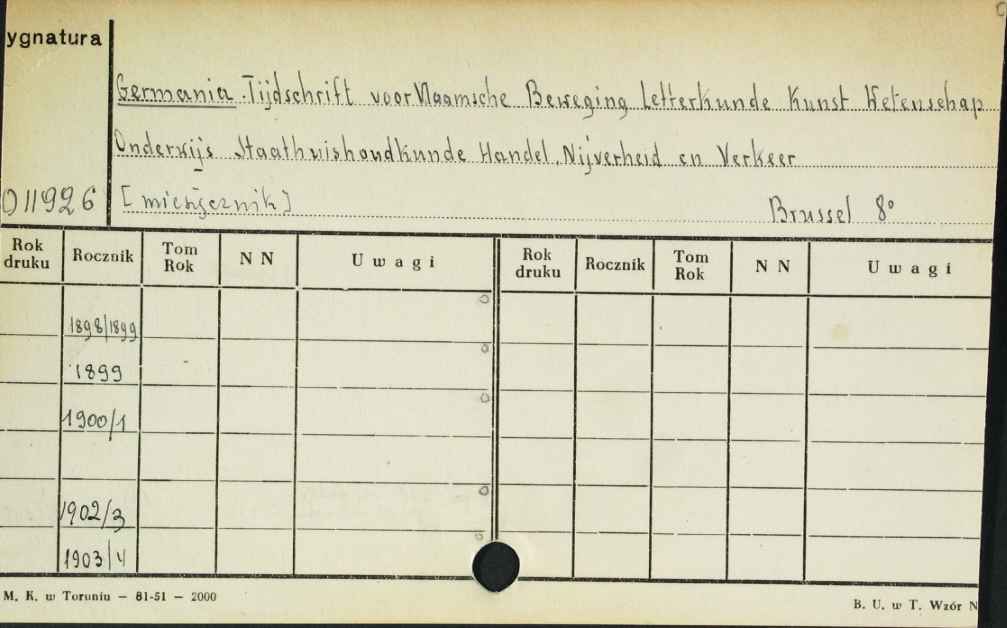 ygnatura
Germania. Tijdschrift voor Vlaamsche Beweging Letterkunde Kunst Wetenschap
Onderwijs Staathuishoudkunde Handel, Nijverheid en Verkeer
011926 [miesięcznik] Brussel 8°
Rok druku Rocznik Tom Rok N N Uwagi Rok druku Rocznik Tom Rok N N Uwagi
1898/1899
1899
1900/1
1902/3
1903/4
M. K. w Toruniu — 81-51 — 2000 B. U. w T. Wzór N